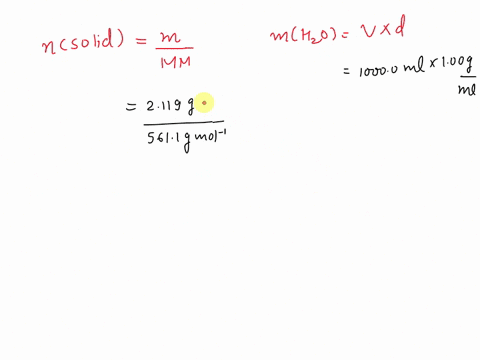 n(solid) = m/MM
= 2.119 g / 561.1 g mol⁻¹
m(H₂O) = V × d
= 1000.0 ml × 1.00g/ml